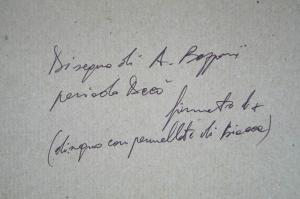 Disegno di A. Bozzoni
periodo Decò
firmato b+
(disegno con pennellate di Biacca)